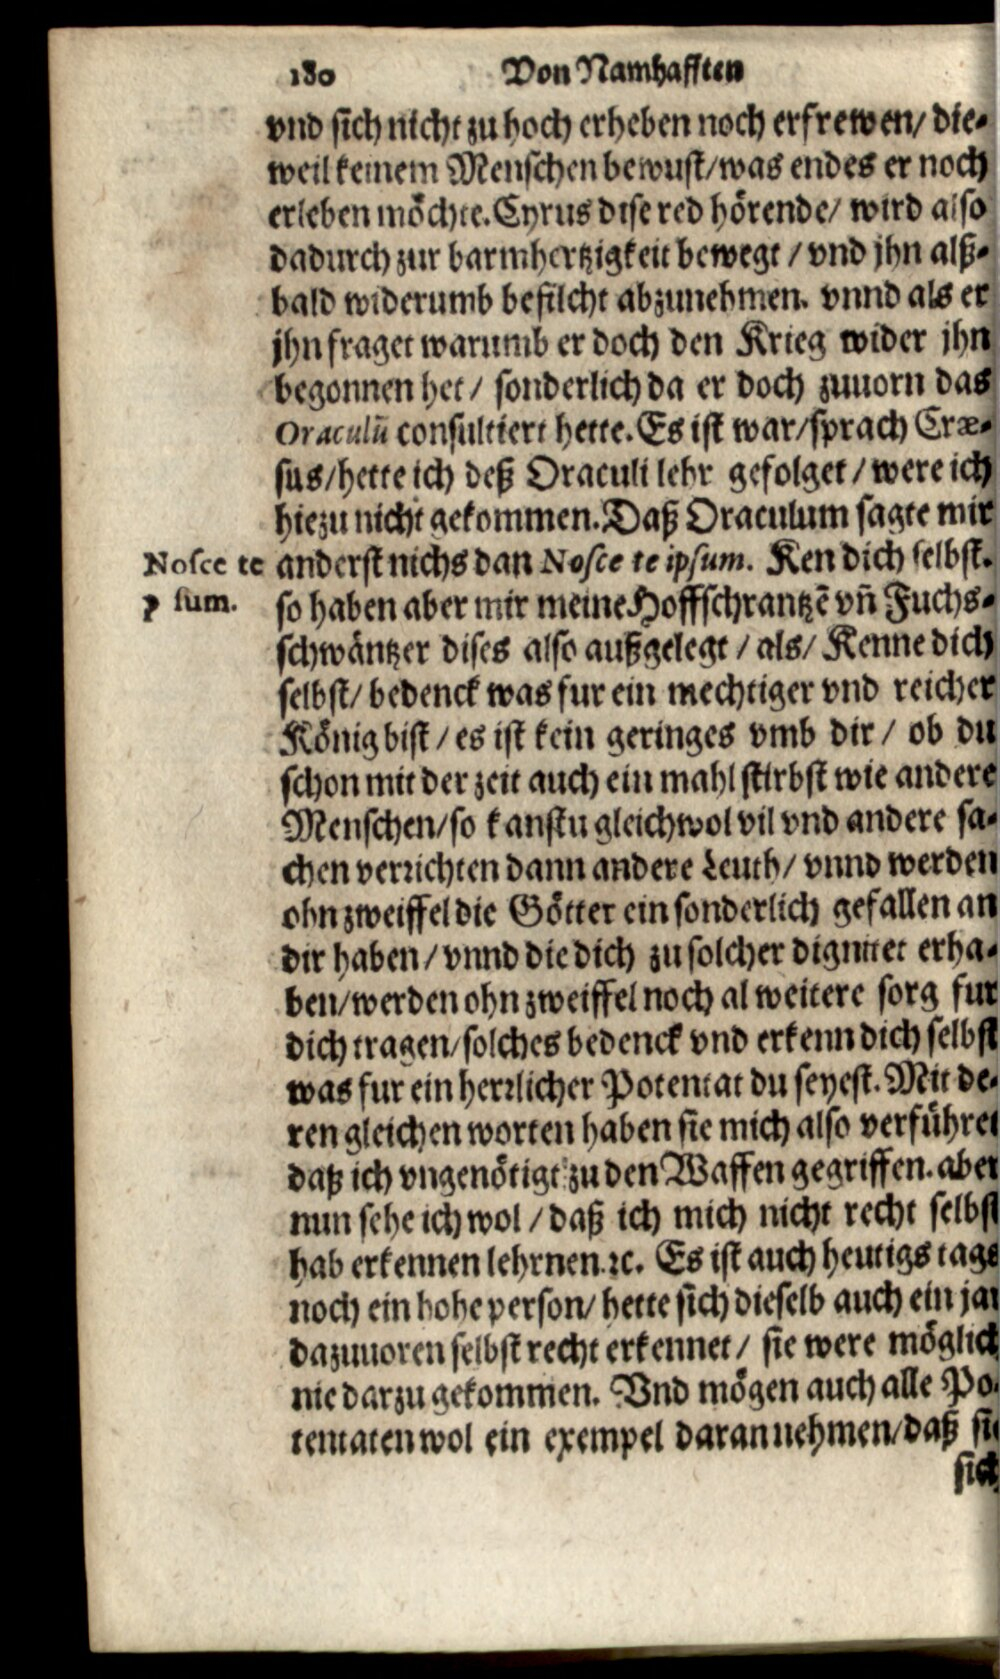 180 Von Namhafften
vnd sich nicht zu hoch erheben noch erfrewen/ die-
weil keinem Menschen bewust/ was endes er noch
erleben möchte. Cyrus dise red hörende/ wird also
dadurch zur barmhertzigkeit bewegt / vnd jhn alß-
bald widerumb befilcht abzunehmen. vnnd als er
jhn fraget warumb er doch den Krieg wider jhn
begonnen het / sonderlich da er doch zuuorn das
Oraculū consultiert hette. Es ist war/ sprach Cræ-
sus/ hette ich deß Oraculi lehr gefolget / were ich
hiezu nicht gekommen. Daß Oraculum sagte mir
Nosce te
p sum.
anderst nichs dan Nosce te ipsum. Ken dich selbst.
so haben aber mir meine Hoffschrantzē vn̄ Fuchs-
schwäntzer dises also außgelegt / als/ Kenne dich
selbst/ bedenck was fur ein mechtiger vnd reicher
König bist / es ist kein geringes vmb dir / ob du
schon mit der zeit auch ein mahl stirbst wie andere
Menschen/ so kanstu gleichwol vil vnd andere sa-
chen verrichten dann andere Leuth/ vnnd werden
ohn zweiffel die Götter ein sonderlich gefallen an
dir haben / vnnd die dich zu solcher dignitet erha-
ben/ werden ohn zweiffel noch al weitere sorg fur
dich tragen/ solches bedenck vnd erkenn dich selbst
was fur ein herrlicher Potentat du seyest. Mit de-
ren gleichen worten haben sie mich also verführet
daß ich vngenötigt zu den Waffen gegriffen. aber
nun sehe ich wol / daß ich mich nicht recht selbst
hab erkennen lehrnen. ꝛc. Es ist auch heutigs tags
noch ein hohe person/ hette sich dieselb auch ein jar
dazuuoren selbst recht erkennet / sie were möglich
nie darzu gekommen. Vnd mögen auch alle Po-
tentaten wol ein exempel daran nehmen/ daß sie
sich